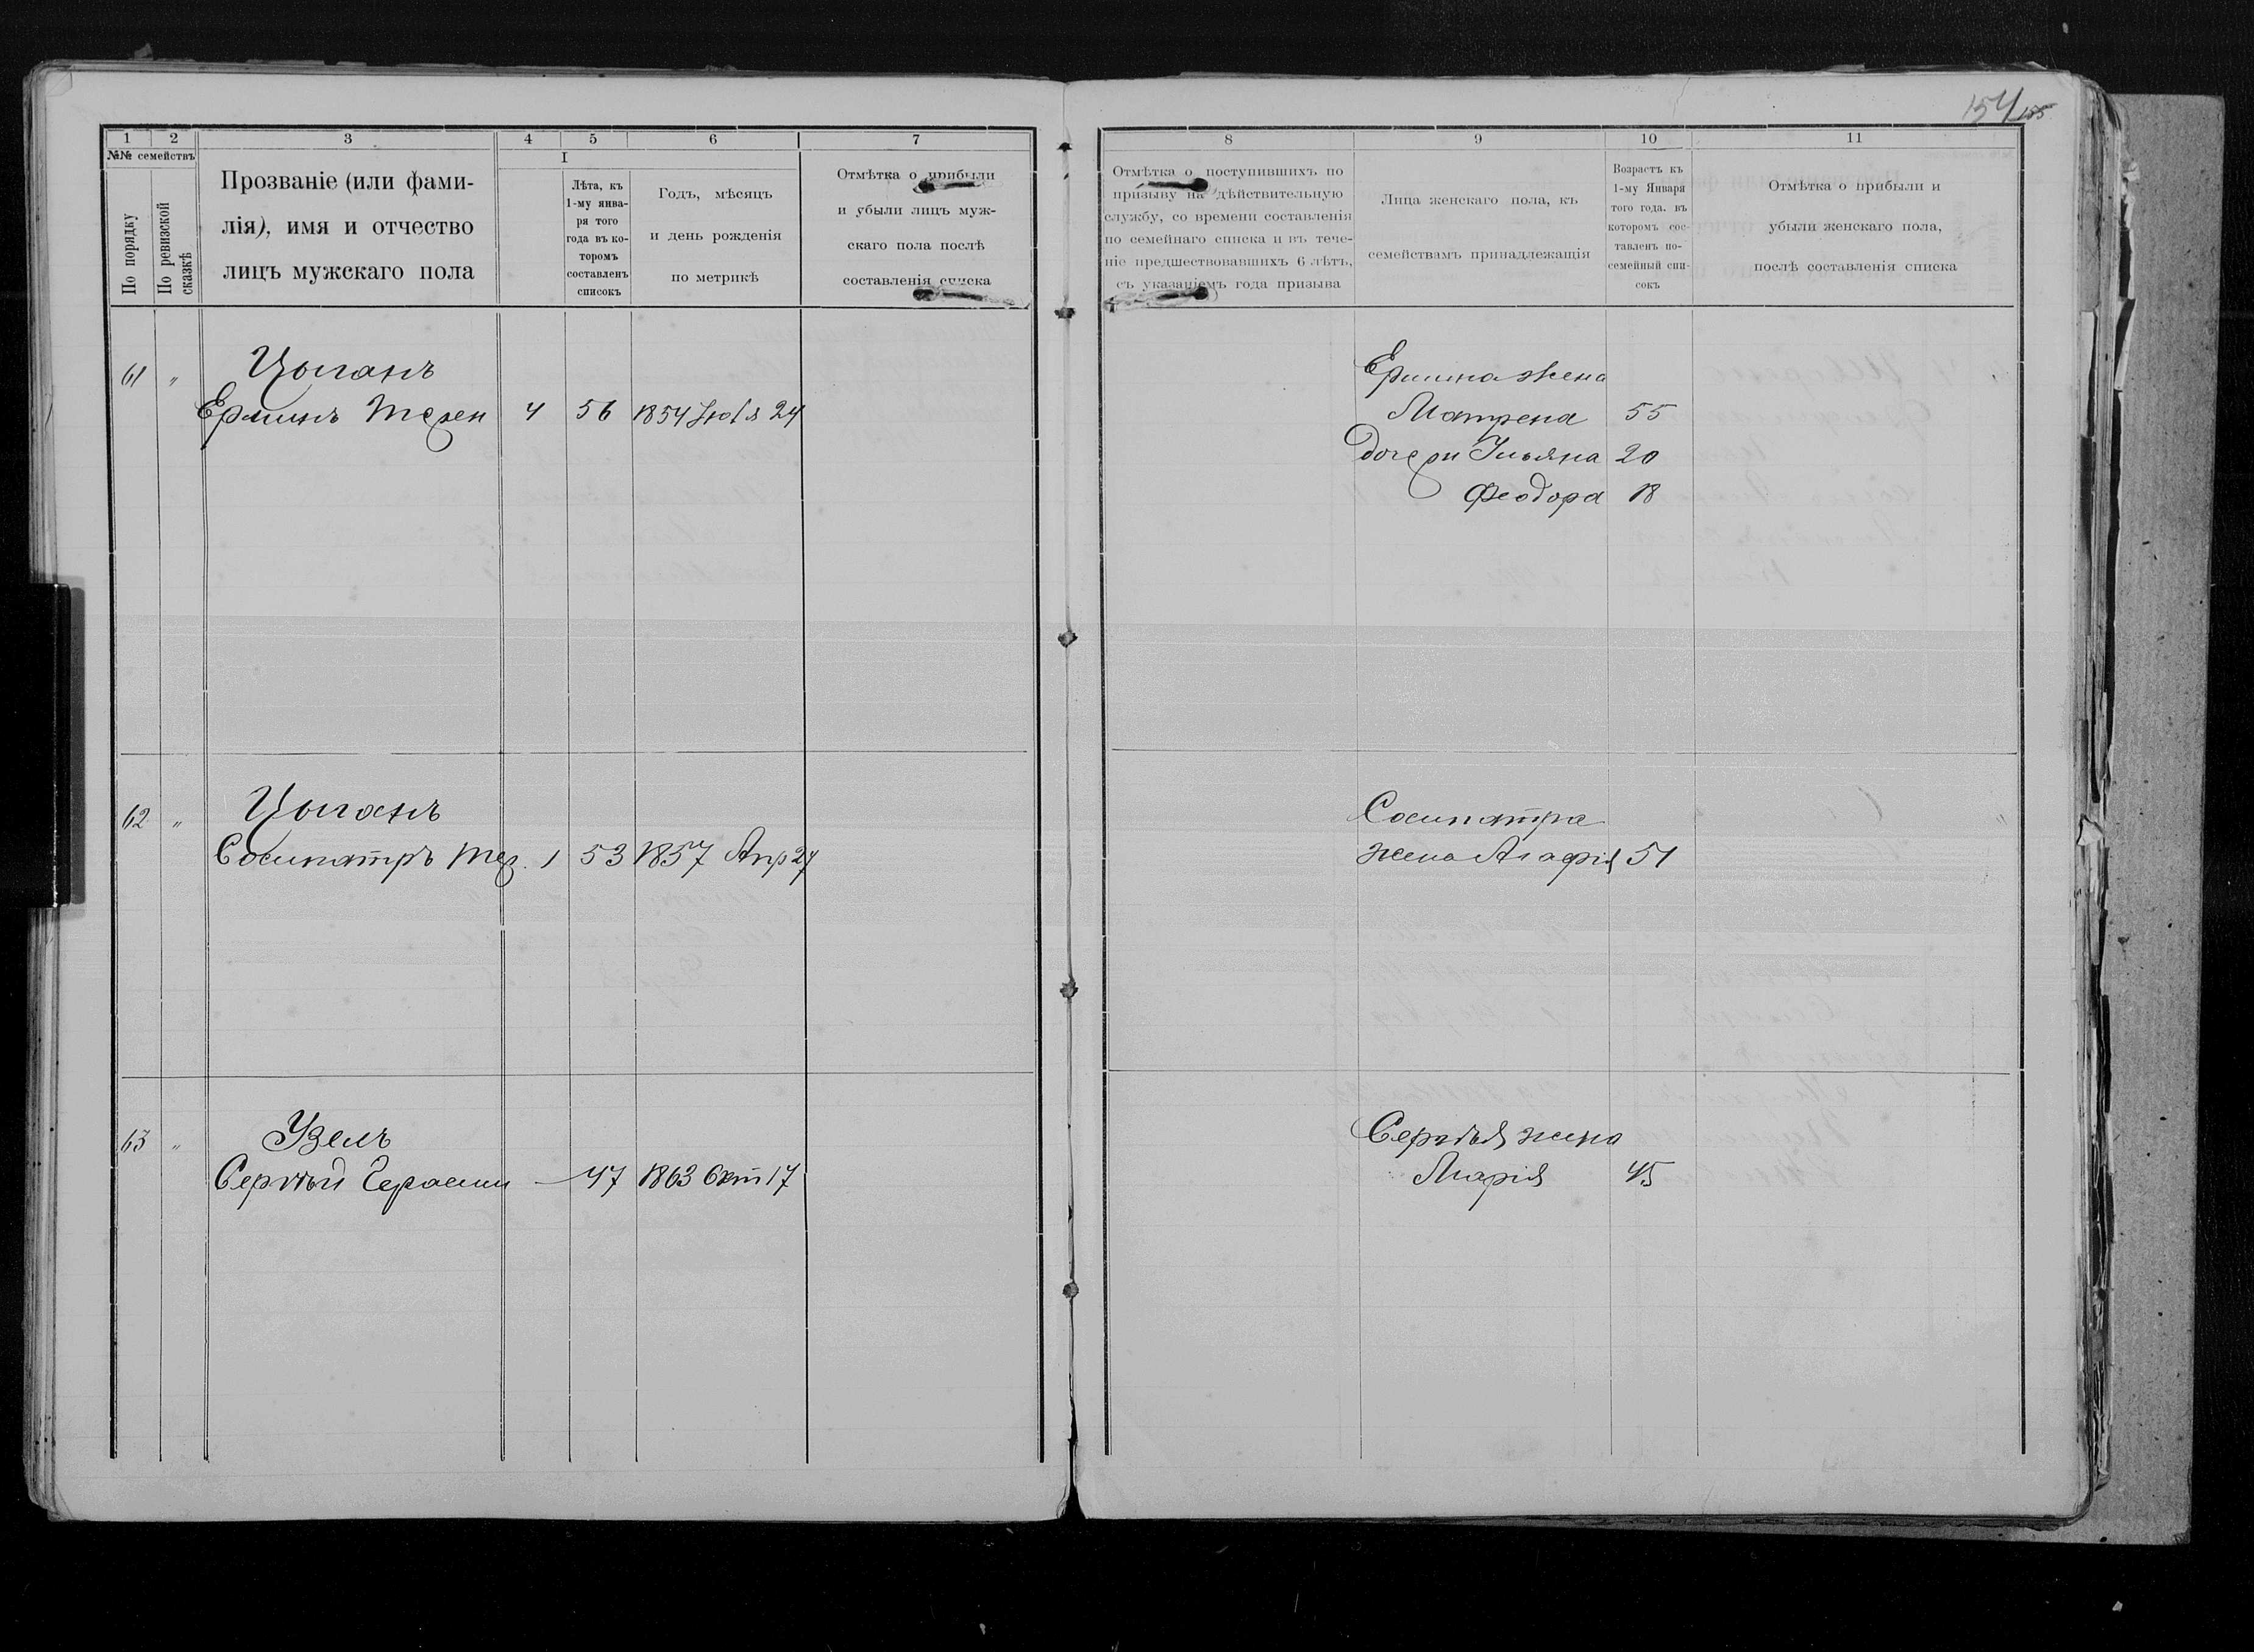 154 155
1 2 3 4 5 6 7
№№ семействъ
По порядку
По ревизской сказкѣ
Прозваніе (или фами-
лія), имя и отчество
лицъ мужскаго пола
I
Лѣта, къ
1-му янва-
ря того
года въ ко-
торомъ
составленъ
списокъ
Годъ, мѣсяцъ
и день рожденія
по метрикѣ
Отмѣтка о прибыли
и убыли лицъ муж-
скаго пола послѣ
составленія списка
61 " Цыганъ
Ермилъ Терен 4 56 1854 24
62 " Цыганъ
Сосипатръ Тер. 1 53 1857 Апр 27
63 " Узелъ
Сергѣй Герасим — 47 1863 Окт 17
8 9 10 11
Отмѣтка о поступившихъ по
призыву на дѣйствительную
службу, со времени составленія
по семейнаго списка и въ тече-
ніе предшествовавшихъ 6 лѣтъ,
съ указаніемъ года призыва
Лица женскаго пола, къ
семействамъ принадлежащія
Возрастъ къ
1-му Января
того года. въ
которомъ сос-
тавленъ по-
семейный спи-
сокъ
Отмѣтка о прибыли и
убыли женскаго пола,
послѣ составленія списка
Ермила жена
Матрена 55
дочери Ульяна 20
Феодора 18
Сосипатра
жена Агафія 51
Сергѣя жена
Марія 45